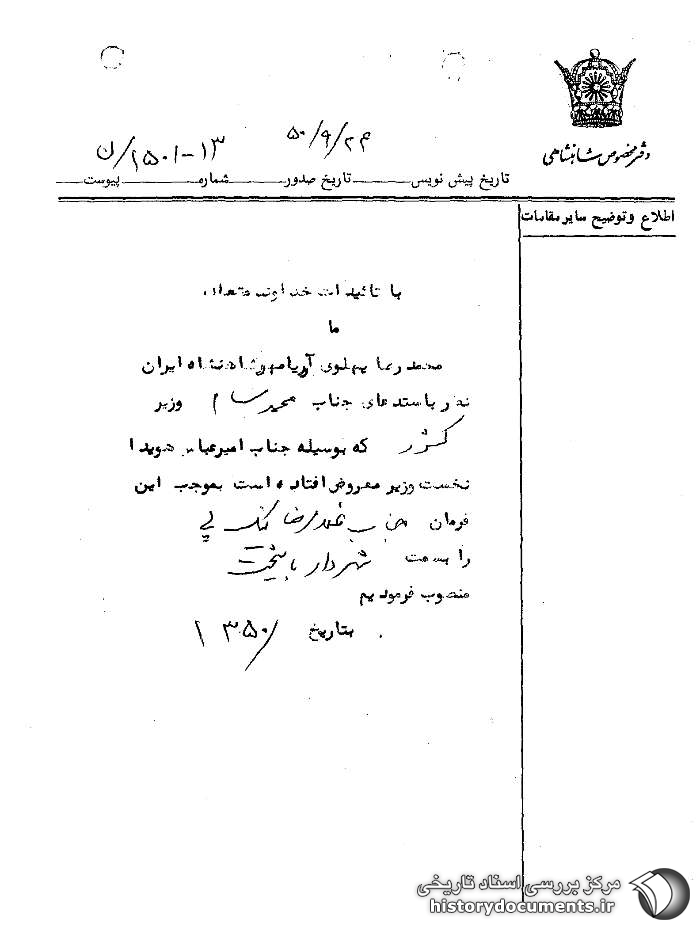 دفتر مخصوص شاهنشاهی
۵۰/۹/۲۴
۱۳-۲۵۰۱/ن
تاریخ پیش نویس تاریخ صدور شماره پیوست
اطلاع و توضیح سایر مقامات
با تائیدات خداوند متعال
ما
محمدرضا پهلوی آریامهر شاهنشاه ایران
نظر باستدعای جناب محمد سام وزیر
کشور که بوسیله جناب امیرعباس هویدا
نخست وزیر معروض افتاده است بموجب این
فرمان جناب غلامرضا نیک پی
را بسمت شهردار پایتخت
منصوب فرمودیم
بتاریخ / ۱۳۵۰
مرکز بررسی اسناد تاریخی
historydocuments.ir